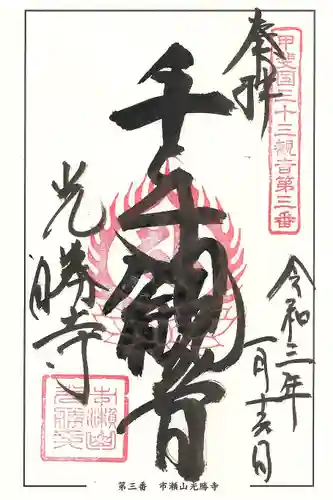 奉拝
甲斐国三十三観音第三番
千手観音
光勝寺
令和三年
一月十六日
市瀬山
光勝寺
第三番 市瀬山光勝寺